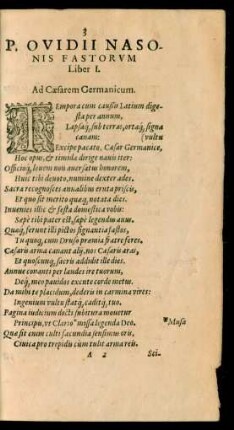 3
P. OVIDII NASO-
NIS FASTORVM
Liber I.
Ad Cæsarem Germanicum.
TEmpora cum causis Latium dige-
sta per annum,
Lapsaq́, sub terras, ortaq́, signa
canam: (vultu
Excipe pacato, Cæsar Germanice,
Hoc opus, & timidæ dirige nauis iter:
Officioq́, leuem non auersatus honorem,
Huic tibi deuoto, numine dexter ades.
Sacra recognosces annalibus eruta priscis,
Et quo sit merito quæq́, notata dies.
Inuenies illic & festa domestica vobis:
Sæpe tibi pater est, sæpe legendus auus.
Quæq́, ferunt illi pictos signantia fastos,
Tu quoq́, cum Druso præmia fratre feres.
Cæsaris arma canant alij, nos Cæsaris aras,
Et quoscunq́, sacris addidit ille dies.
Annue conanti per laudes ire tuorum,
Deq́, meo pauidos excute corde metus.
Da mihi te placidum, dederis in carmina vires:
Ingenium vultu statq́, caditq́, tuo.
Pagina iudicium docti subitura mouetur
Principis, vt Clario * missa legenda Deo. * Musa
Quæ sit enim culti facundia sensimus oris,
Ciuica pro trepidis cùm tulit arma reis.
A 2 Sci-